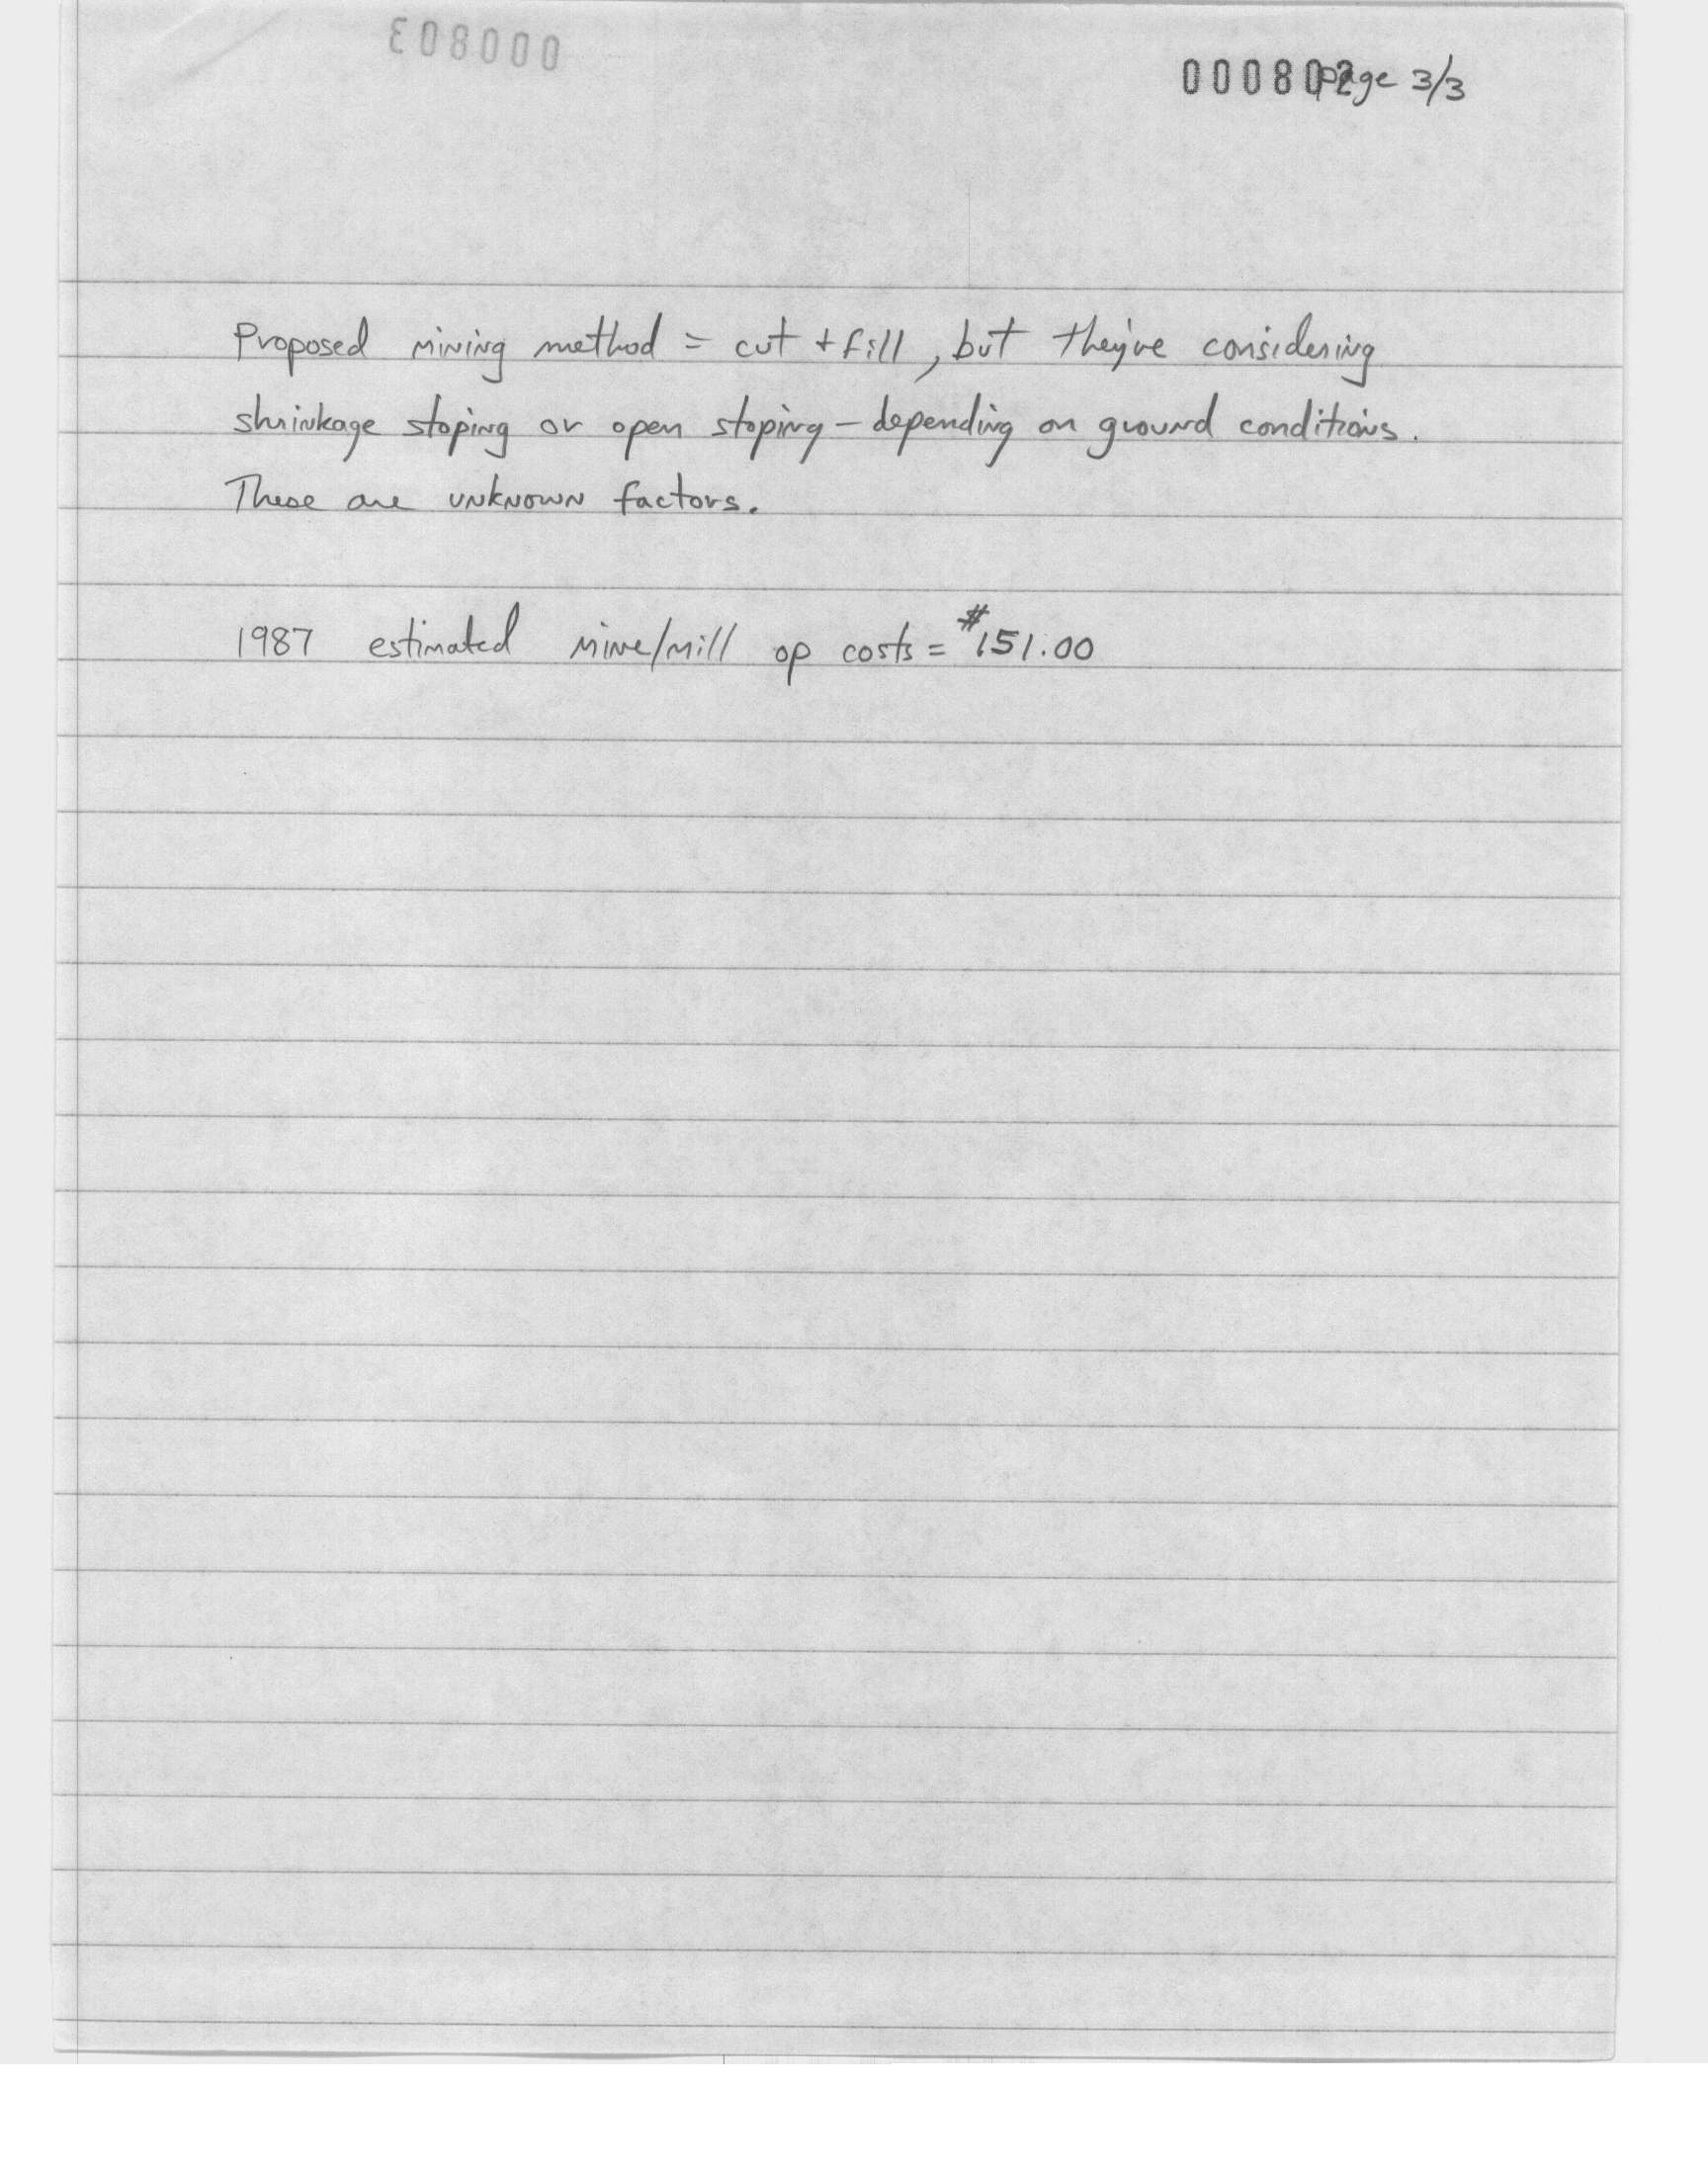 000803
000802 page 3/3
Proposed mining method = cut + fill, but they're considering
shrinkage stoping or open stoping - depending on ground conditions.
These are unknown factors.
1987 estimated mine/mill op costs = $151.00